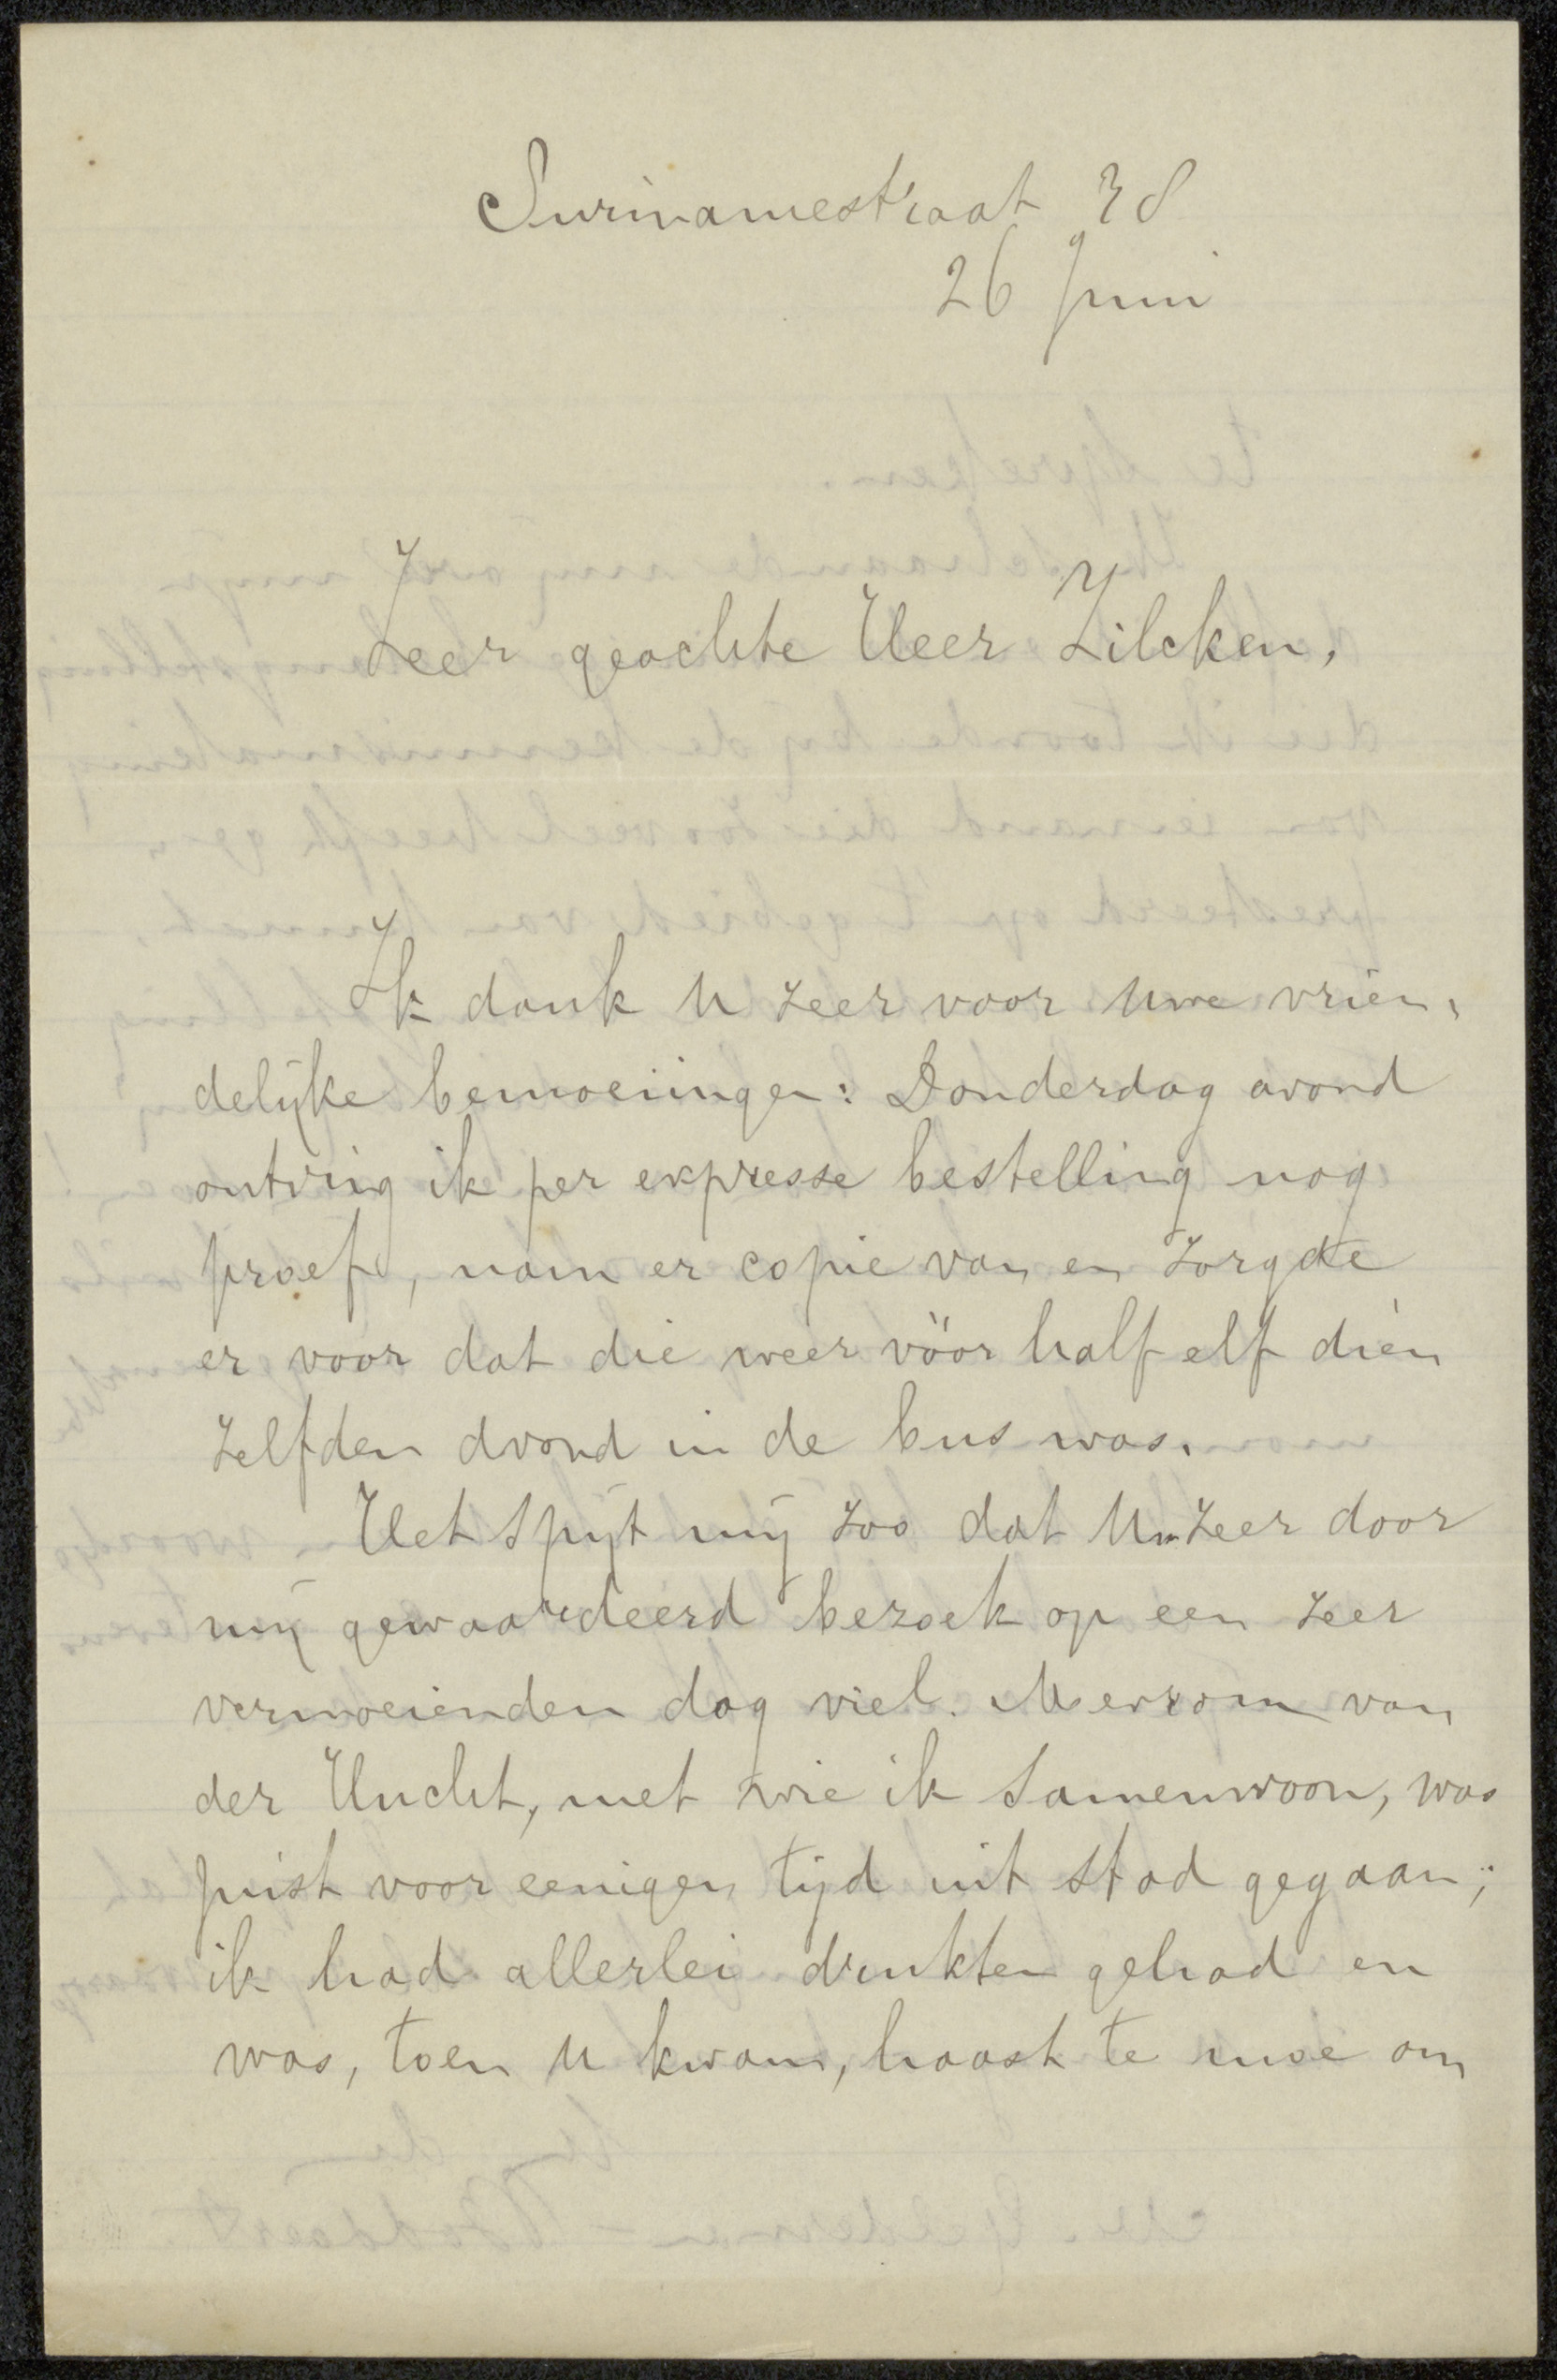 Surinamestraat 38
26 Juni
Zeer geachte Heer Zilcken,
Ik dank U zeer voor Uwe vrien,
delijke bemoeiingen: Donderdag avond
ontving ik per expresse bestelling nog
proef, nam er copie van en zorgde
er voor dat die weer vóór half elf dien
zelfden avond in de bus was.
Het spijt mij zoo dat Uw zeer door
mij gewaardeerd bezoek op een zeer
vermoeienden dag viel. Mevrouw van
der Hucht, met wie ik samenwoon, was
juist voor eenigen tijd uit stad gegaan;
ik had allerlei drukten gehad en
was, toen U kwam, haast te moe om